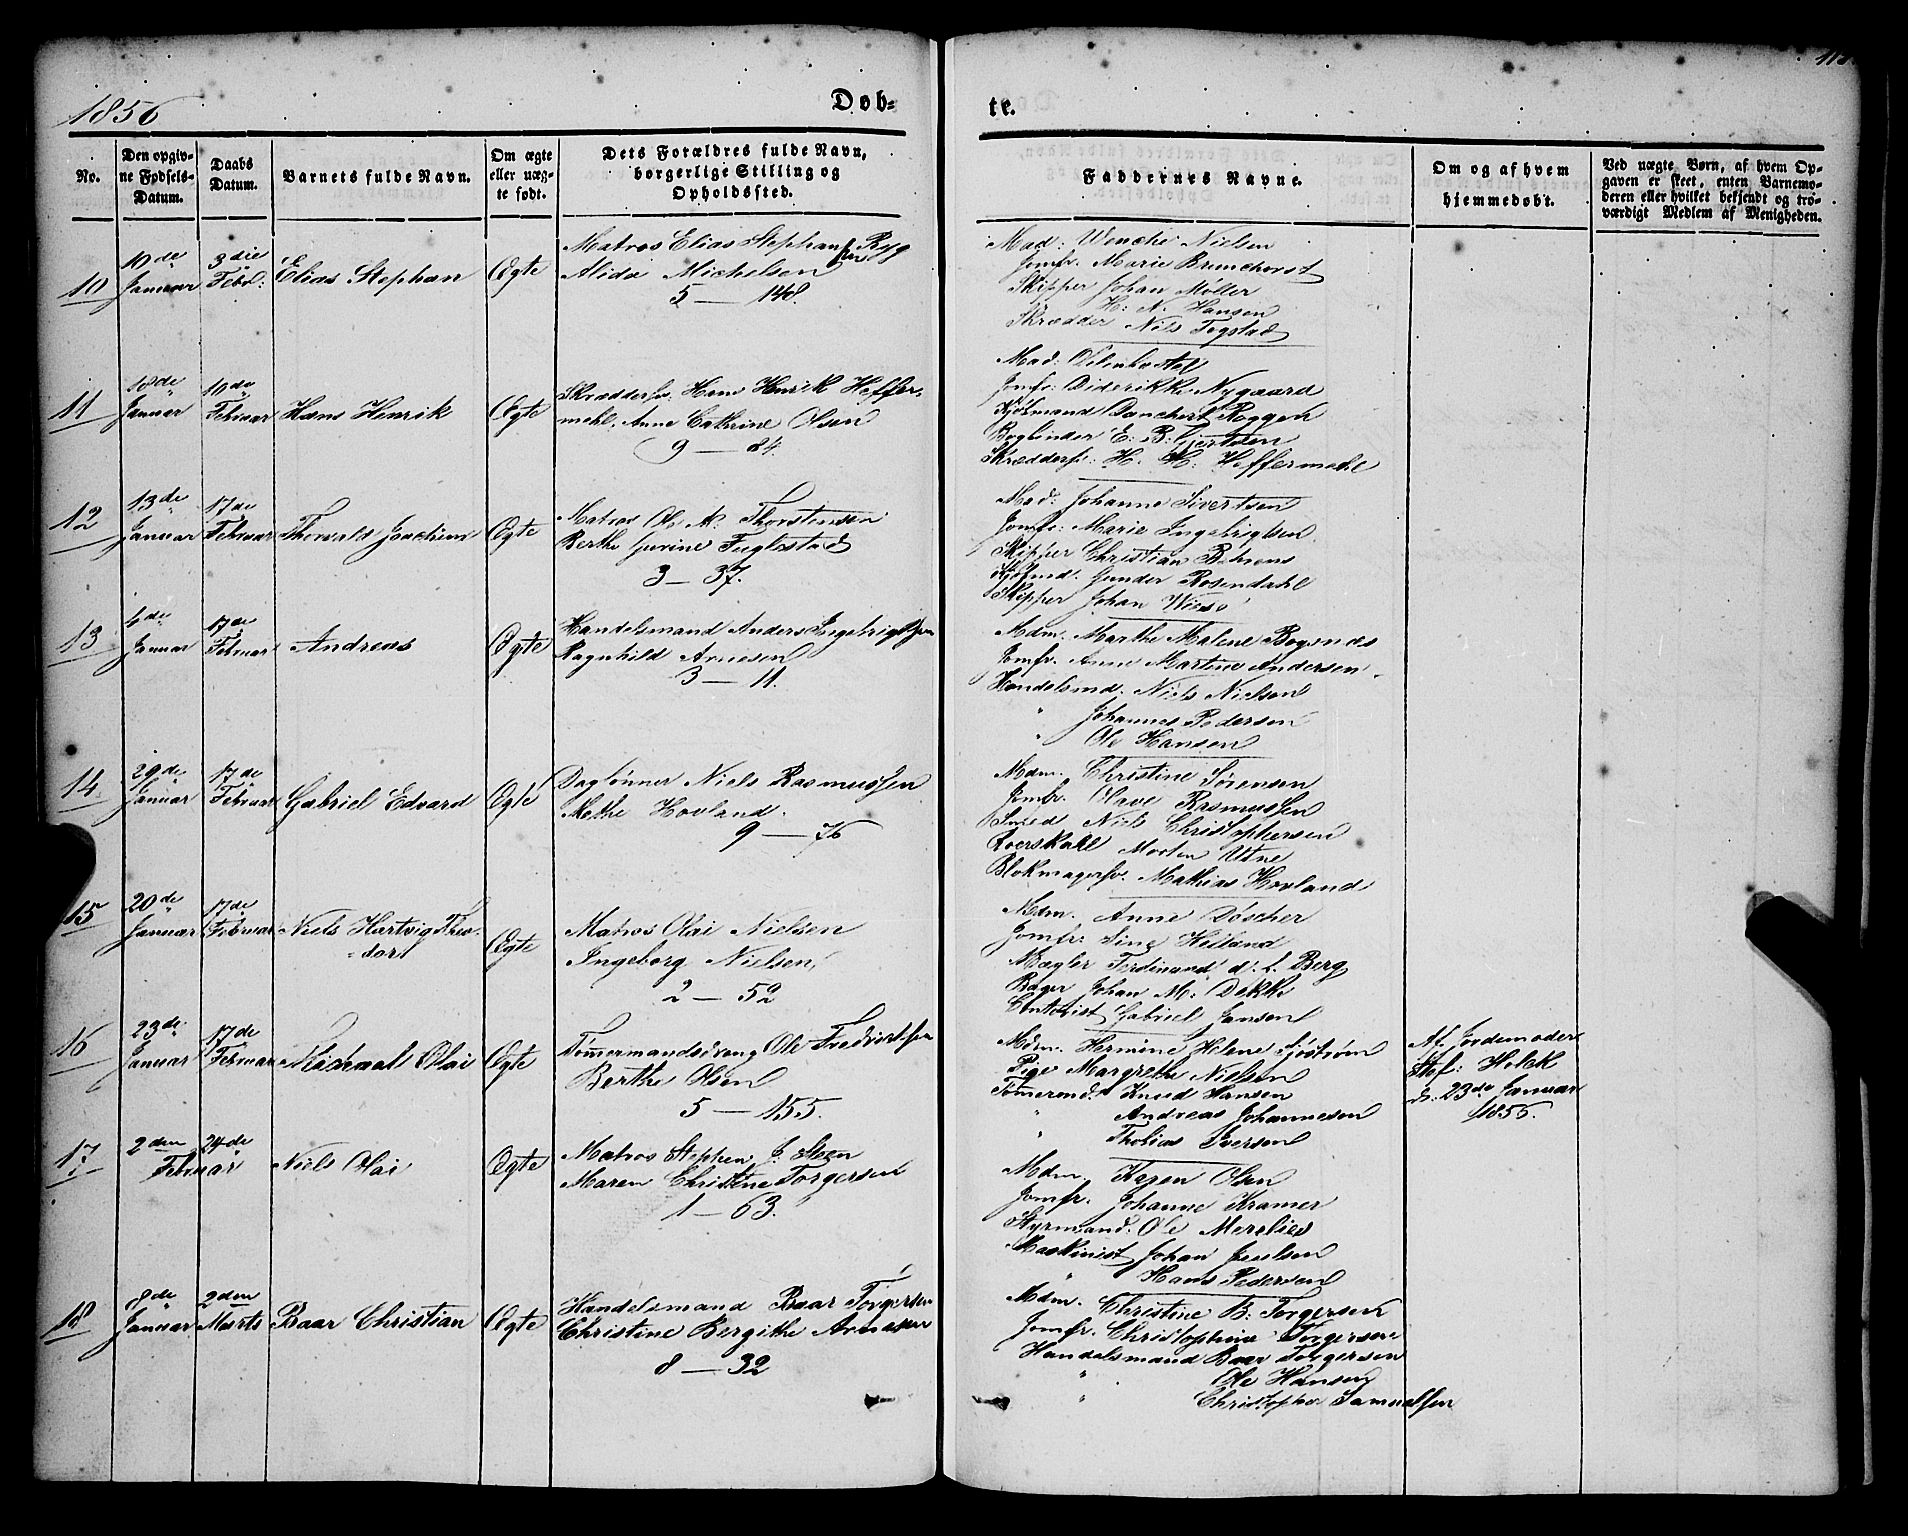 1856
Døb-
te.
No.
Den opgiv-
ne Fødsels-
Datum.
Daabs
Datum.
Barnets fulde Navn.
Om ægte
eller uæg-
te født.
Dets Forældres fulde Navn,
borgerlige Stilling og
Opholdssted.
Faddernes Navne.
Om og af hvem
hjemmedøbt.
Ved uægte Børn, af hvem Op-
gaven er skeet, enten Barnemo-
deren eller hvilket bekjendt og tro-
værdigt Medlem af Menigheden.
10
19de Januar
3die Febr.
Elias Stephan
Ægte
Matros Elias Stephansen Ryg
Alida Michelsen
5 — 148.
Mad: Wenche Nielsen
Jomfr. Marie Brunchorst
Skipper Johan Møller
H: N. Hansen
Skrædder Nils Tegstad
11
18de Januar
10de Februar
Hans Henrik
Ægte
Skræddersv. Hans Henrik Heffer-
mehl. Anne Cathrine Olsen
9 — 84.
Mad:
Jomfr: Diderikke Nygaard
Kjøbmand Danchert Roggen
Bogbinder E. B. Gjertsen
Skræddersv. H. H. Heffermehl
12
13de Januar
17de Februar
Thorvald Joachim
Ægte
Matros Ole M. Thorstensen
Berthe Gurine Fuglestad
3 — 37.
Mad: Johanne Sivertsen
Jomfr: Marie Ingebrigtsen
Skipper Christian Behrens
Kjøbmd. Gunder Rosendahl
Skipper Johan Wiese
13
4de Januar
17de Februar
Andreas
Ægte
Handelsmand Anders Ingebrigtsen
Ragnhild Arnesen
3 — 11.
Mdm. Marthe Malene Bognæs
Jomfr. Anne Martine Andersen
Handelsmd. Niels Nielsen
" Johannes Pedersen
" Ole Hansen
14
29de Januar
17de Februar
Gabriel Edvard
Ægte
Daglønner Niels Rasmussen
Methe Hovland.
9 — 76
Mdm. Christine Sørensen
Jomfr. Olave Rasmussen
Smed Niels Christophersen
Morten Utne
Blokmagersv. Mathias Hovland
15
20de Januar
17de Februar
Niels Hartvig Theo-
dor
Ægte
Matros Olai Nielsen
Ingeborg Nielsen
2 — 52
Mdm. Anne Döscher
Jomfr: Sine Heiland
Mægler Ferdinand d. L. Berg
Bager Johan M: Dekke
Contorist Gabriel Jansen
16
23de Januar
17de Februar
Olai
Ægte
Tømmermandsdreng Ole Fredriksen
Berthe Olsen
5 — 155.
Mdm. Hermine Helene Sjöström
Pige Margrethe Nielsen
Tømmermd. Knud Hansen
" Andreas Johannesen
" Thobias Iversen
Af Jordemoder
Stef: Holck
d: 23de Januar
1856.
17
2den Februar
24de
Niels Olai
Ægte
Matros Stephen J. Steen
Maren Christine Torgersen
1 — 63.
Mdm. Karen Olsen
Jomfr. Johanne Kramer
Styrmand. Ole
Maskinist Johan Juulsen
" Hans Pedersen
18
8de Januar
2den Marts
Baar Christian
Ægte
Handelsmand Baar Torgersen
Christine Bergithe Arnesen
8 — 32
Mdm. Christine B: Torgersen
Jomfr. Christophine Torgersen
Handelsmand Baar Torgersen
" Ole Hansen
" Christopher Samuelsen